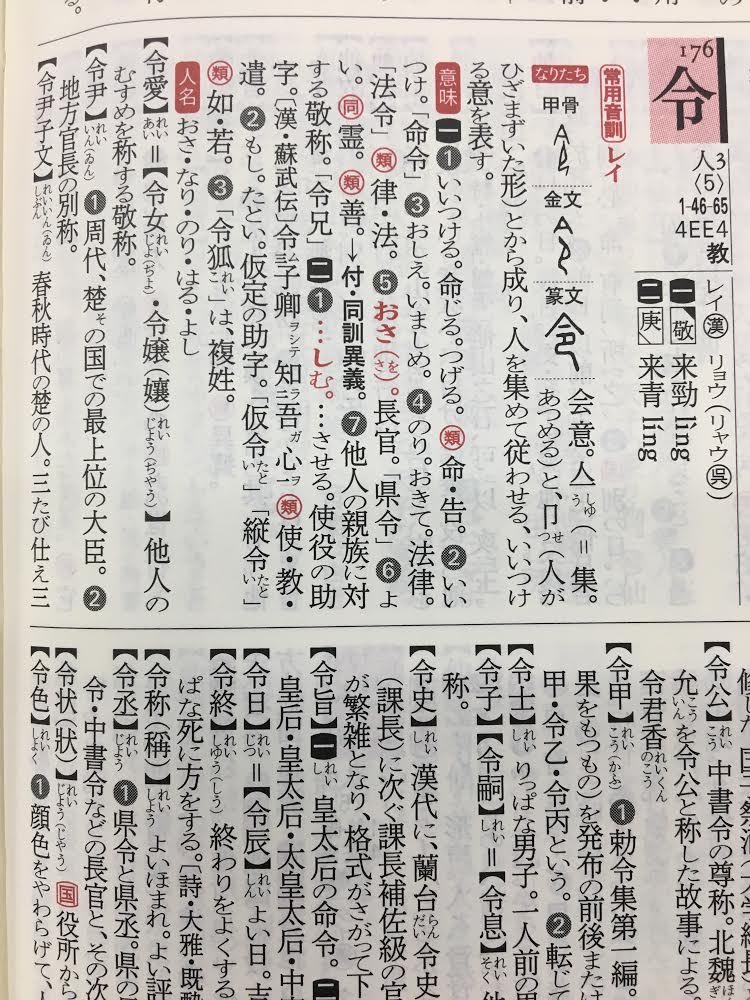 176
令
人3
〈5〉
1-46-65
4EE4
教
レイ漢 リョウ(リャウ)呉
一 敬 来勁 lìng
二 庚 来青 líng
常用音訓 レイ
なりたち 甲骨 金文 篆文 会意。亼(しゅう=集。
あつめる)と卩(つせ)(人が
ひざまずいた形)とから成り、人を集めて従わせる、いいつけ
る意を表す。
意味 一 ❶いいつける。命じる。つげる。類 命・告。❷いい
つけ。「命令」❸おしえ。いましめ。❹のり。おきて。法律。
「法令」類 律・法。❺おさ(をさ)。長官。「県令」❻よ
い。同 霊。類 善。→付・同訓異義。❼他人の親族に対
する敬称。「令兄」二 ❶…しむ。…させる。使役の助
字。〔漢・蘇武伝〕令ム三子卿ヲシテ知二ラ吾ガ心一ヲ 類 使・教・
遣。❷もし。たとい。仮定の助字。「仮令たとい」「縦令たとい」
類 如・若。❸「令狐れいこ」は、複姓。
人名 おさ・なり・のり・はる・よし
【令愛】れいあい=【令女】れいじょ(ぢょ)・令嬢(孃)れいじょう(ぢゃう)】他人の
むすめを称する敬称。
【令尹】れいいん(ゐん) ❶周代、楚その国での最上位の大臣。❷
地方官長の別称。
【令尹子文】れいいん(ゐん)しぶん 春秋時代の楚の人。三たび仕え三
【令公】れいこう 中書令の尊称。北魏ぎ
允こういんを令公と称した故事による
令君香れいくんのこう
【令甲】れいこう(かふ) ❶勅令集第一編。
果をもつもの)を発布の前後または
甲・令乙・令丙という。❷転じて
【令士】れいし りっぱな男子。一人前の
【令子】れいし【令嗣】れいし=【令息】れいそく
称。
【令史】れいし 漢代に、蘭台らんだい令史
(課長)に次ぐ課長補佐級の官
が繁雑となり、格式がさがって下
【令旨】れいし 一 皇太后の命令。二
皇后・皇太后・太皇太后・中
【令日】れいじつ=【令辰】れいしん よい日。吉
【令終】れいしゅう(しう) 終わりをよくする
ぱな死に方をする。〔詩・大雅・既酔
【令称(稱)】れいしょう よいほまれ。よい評
【令丞】れいじょう ❶県令と県丞。県の
令・中書令などの長官と、その次
【令状(狀)】れいじょう(じやう) 国 役所から
【令色】れいしょく ❶顔色をやわらげて、